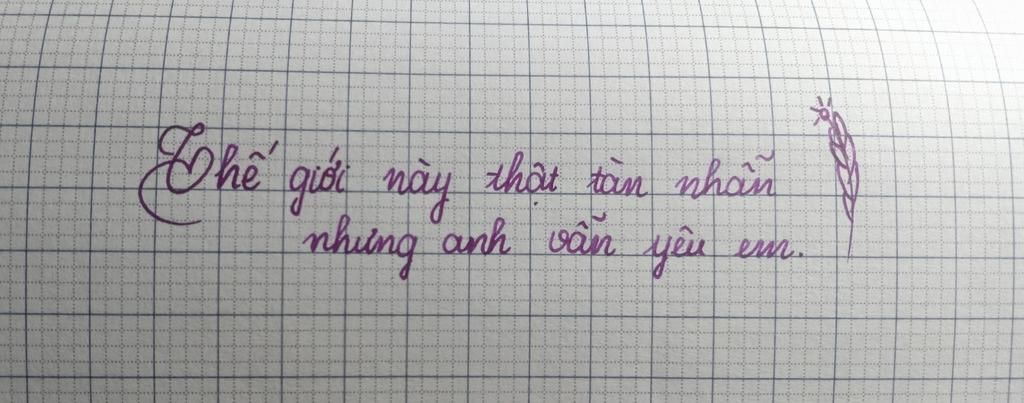 Thế giới này thật tàn nhẫn
nhưng anh vẫn yêu em.